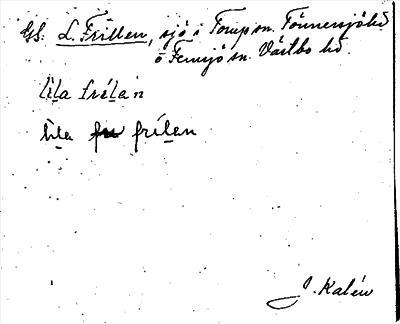 GS: L. Frillen, sjö i Torup sn. Tönnersjö hd
o Femsjö sn. Västbo hd.
lila frílan
lila frílan
J. Kalén